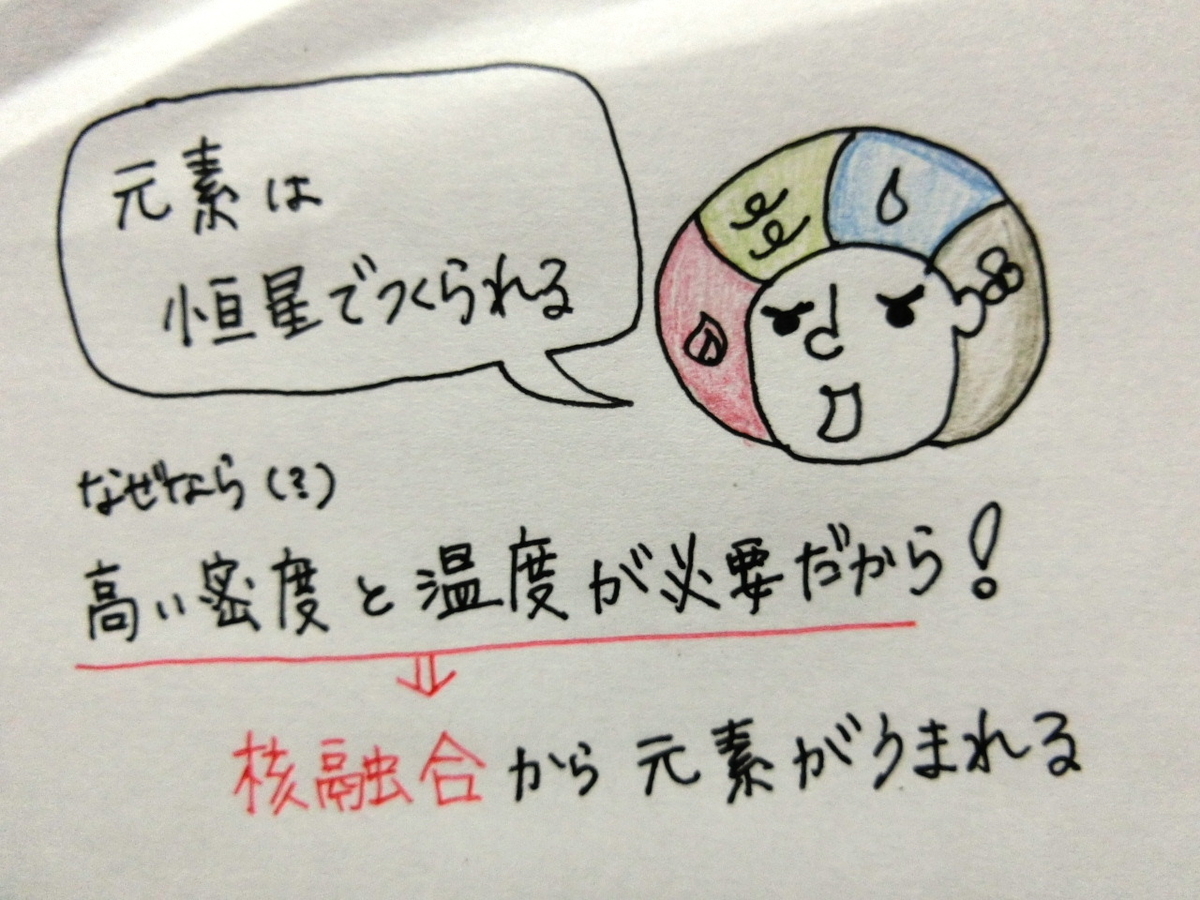 元素は
恒星でつくられる
なぜなら(?)
高い密度と温度が必要だから!
核融合から元素がうまれる